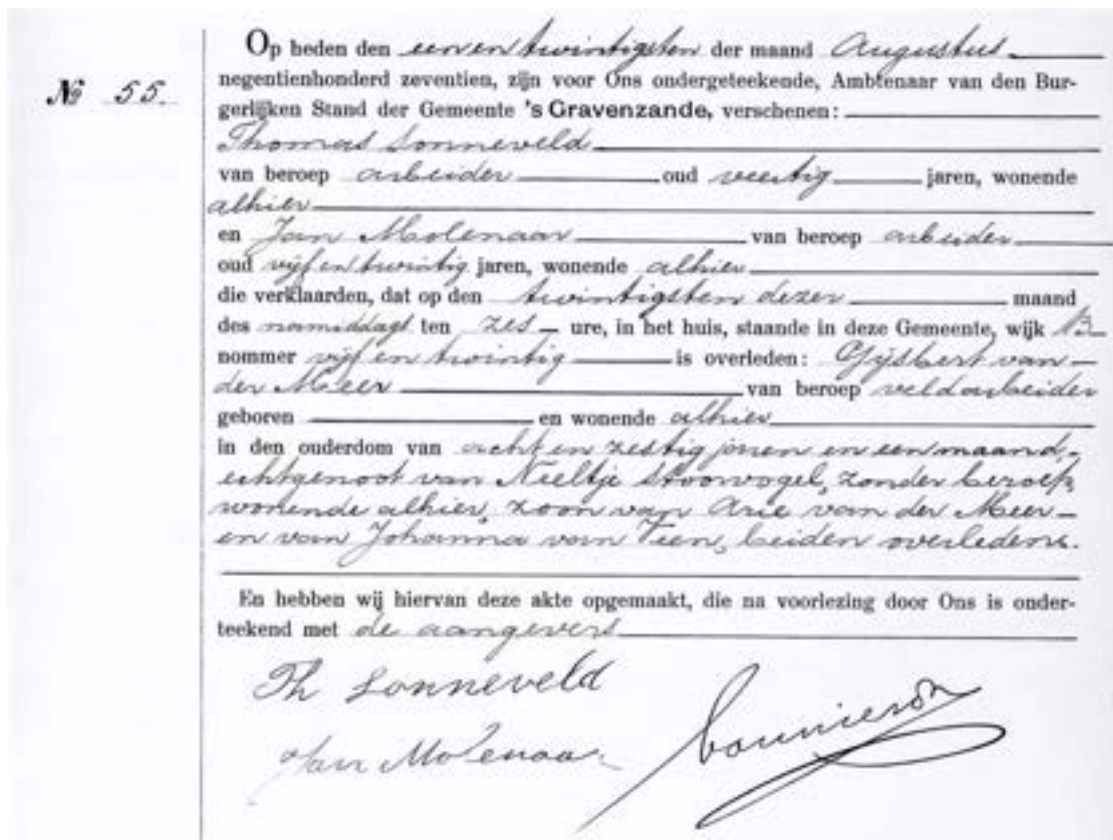 Op heden den een en twintigsten der maand Augustus
№ 55.
negentienhonderd zeventien, zijn voor Ons ondergeteekende, Ambtenaar van den Bur-
gerlijken Stand der Gemeente 's Gravenzande, verschenen:
Thomas Sonneveld
van beroep arbeider oud veertig jaren, wonende
alhier
en Jan Molenaar van beroep arbeider
oud vijf en twintig jaren, wonende alhier
die verklaarden, dat op den twintigsten dezer maand
des namiddags ten zes ure, in het huis, staande in deze Gemeente, wijk B
nommer vijf en twintig is overleden: Gijsbert van
der Meer van beroep veldarbeider
geboren en wonende alhier
in den ouderdom van acht en zestig jaren en een maand,
echtgenoot van Neeltje Stoorvogel, zonder beroep,
wonende alhier, zoon van Arie van der Meer
en van Johanna van Veen, beiden overleden.
En hebben wij hiervan deze akte opgemaakt, die na voorlezing door Ons is onder-
teekend met de aangevers
Th Sonneveld
Jan Molenaar